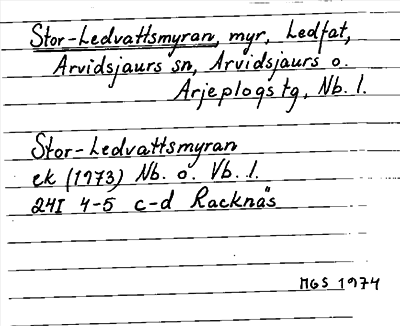 Stor-Ledvattsmyran, myr, Ledfat,
Arvidsjaurs sn, Arvidsjaurs o.
Arjeplogs tg, Nb. l.
Stor-Ledvattsmyran
ek (1973) Nb. o. Vb. l.
24I 4-5 c-d Racknäs
MGS 1974